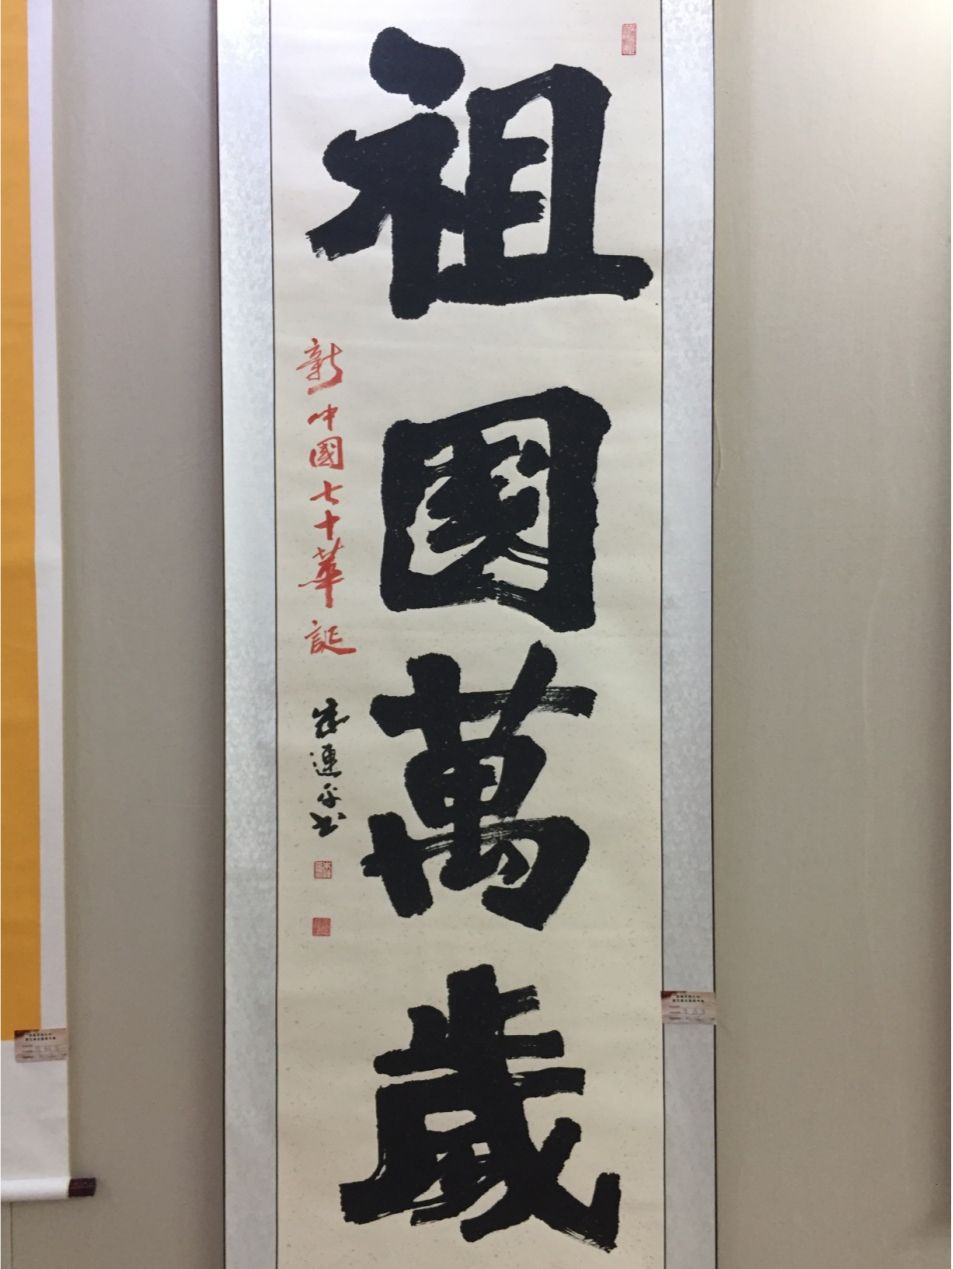 祖國萬歲
新中國七十華誕
連平书